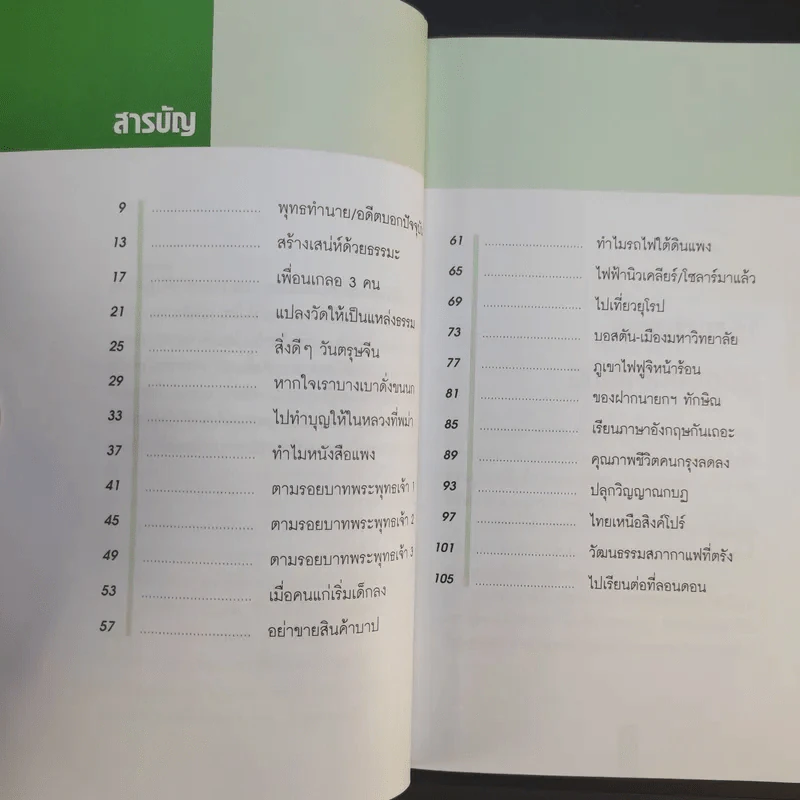 สารบัญ
9 พุทธทำนาย/อดีตบอกปัจจุบัน
13 สร้างเสน่ห์ด้วยธรรมะ
17 เพื่อนเกลอ 3 คน
21 แปลงวัดให้เป็นแหล่งธรรม
25 สิ่งดีๆ วันตรุษจีน
29 หากใจเราบางเบาดั่งขนนก
33 ไปทำบุญให้ในหลวงที่พม่า
37 ทำไมหนังสือแพง
41 ตามรอยบาทพระพุทธเจ้า 1
45 ตามรอยบาทพระพุทธเจ้า 2
49 ตามรอยบาทพระพุทธเจ้า 3
53 เมื่อคนแก่เริ่มเด็กลง
57 อย่าขายสินค้าบาป
61 ทำไมรถไฟใต้ดินแพง
65 ไฟฟ้านิวเคลียร์/โซลาร์มาแล้ว
69 ไปเที่ยวยุโรป
73 บอสตัน-เมืองมหาวิทยาลัย
77 ภูเขาไฟฟูจิหน้าร้อน
81 ของฝากนายกฯ ทักษิณ
85 เรียนภาษาอังกฤษกันเถอะ
89 คุณภาพชีวิตคนกรุงลดลง
93 ปลุกวิญญาณกบฏ
97 ไทยเหนือสิงค์โปร์
101 วัฒนธรรมสภากาแฟที่ตรัง
105 ไปเรียนต่อที่ลอนดอน